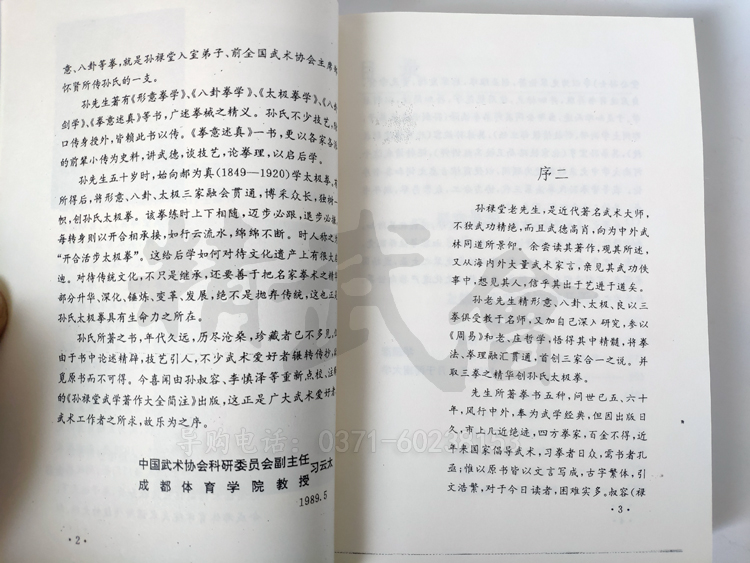 意、八卦等拳，就是孙禄堂入室弟子、前全国武术协会主席
怀贤所传孙氏的一支。
孙先生著有《形意拳学》、《八卦拳学》、《太极拳学》、《八
剑学》、《拳意述真》等书，广述拳械之精义。孙氏不少技艺，
口传身授外，皆赖此书以传。《拳意述真》一书，更以各家各
的前辈小传为史料，讲武德，谈技艺，论拳理，以启后学。
孙先生五十岁时，始向郝为真(1849—1920)学太极拳，
所得后，将形意、八卦、太极三家融会贯通，博采众长，独树一
帜，创孙氏太极拳。该拳练时上下相随，迈步必跟，退步必
每转身则以开合相承接，如行云流水，绵绵不断。时人称之
“开合活步太极拳”。这给后学如何对待文化遗产上有很大
迪。对待传统文化，不只是继承，还要善于把名家拳术之精
部分升华、深化、锤炼、变革、发展，绝不是抛弃传统，这也正
孙氏太极拳具有生命力之所在。
孙氏所著之书，年代久远，历尽沧桑，珍藏者已不多见，
由于书中论述精辟，技艺引人，不少武术爱好者辗转传抄，
觅原书而不可得。今喜闻由孙叔容、李慎泽等重新点校、注
的《孙禄堂武学著作大全简注》出版，这正是广大武术爱好
武术工作者之所求，故乐为之序。
中国武术协会科研委员会副主任
成都体育学院教授
习云太
1989.5
·2·
序二
孙禄堂老先生，是近代著名武术大师，
不独武功精绝，而且武德高尚，向为中外武
林同道所景仰。余尝读其著作，观其所述，
又从海内外大量武术家言，亲见其武功轶
事中，想见其人，信乎其出于艺进于道矣。
孙老先生精形意、八卦、太极、良以三
拳俱受教于名师，又加自己深入研究，参以
《周易》和老、庄哲学，悟得其中精髓，将拳
法、拳理融汇贯通，首创三家合一之说。并
取三拳之精华创孙氏太极拳。
先生所著拳书五种，问世已五、六十
年，风行中外，奉为武学经典，但因出版日
久，市上几近绝迹，四方拳家，百金不得，近
年来国家倡导武术，习拳者日众，需书者孔
亟；惟以原书皆以文言写成，古字繁体，引
文浩繁，对于今日读者，困难实多。叔容(禄
·3·
精武會
导购电话：0371-60238153